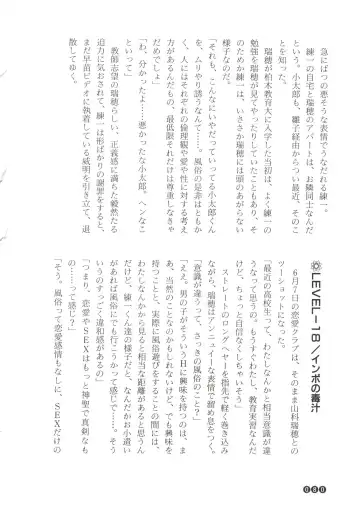 急にばつの悪そうな表情でうなだれる練一。
練一の自宅と瑞穂のアパートは、お隣同士なんだ
という。小太郎も、雛子経由からつい最近、そのこ
とを知った。
瑞穂が柏木教育大に入学した当初は、よく練一の
勉強を瑞穂が見てやったりしていたこともあり、そ
のためか練一は、いささか瑞穂には頭のあがらない
様子なのだ。
「それも、こんなにいやだっていってる小太郎くん
を、ムリやり誘うなんて……。風俗の是非はともか
く、人にはそれぞれの倫理観や愛や性に対する考え
方があるんだもの、最低限それだけは尊重しなきゃ
だめでしょ」
「わ、分かったよ……悪かったな小太郎。ヘンなこ
といって」
教師志望の瑞穂らしい、正義感に満ちた毅然たる
迫力に気おされて、練一は形ばかりの謝罪をすると、
まだ早苗ビデオに執着している威明を引き立て、退
散してゆく。
LEVEL-18/インボの毒汁
6月7日の恋愛クラブは、そのまま山科瑞穂との
ツーショットになった。
「最近の高校生って、わたしなんかと相当意識が違
うなって思うの。もうすぐわたし、教育実習なんだ
けど、ちょっと自信なくしちゃいそう」
ストレートのロングヘヤーを指先で軽く巻き込み
ながら、瑞穂はアンニュイな表情で溜め息をつく。
「意識が違うって、さっきの風俗のこと?」
「ええ。男の子がそういうHに興味を持つのは、ま
あ、当然のことなのかもしれないけど。でも興味を
持つことと、実際に風俗遊びをすることの間には、
わたしなんかから見ると相当な距離があると思うん
だけど、練一くん達の様子だと、なんだかお小遣い
があれば風俗にでも行こうかって感じで……。そう
いうのすっごく違和感があるの」
「つまり、恋愛やSEXはもっと神聖で真剣なも
の……って感じ?」
「そう。風俗って恋愛感情もなしに、SEXだけの